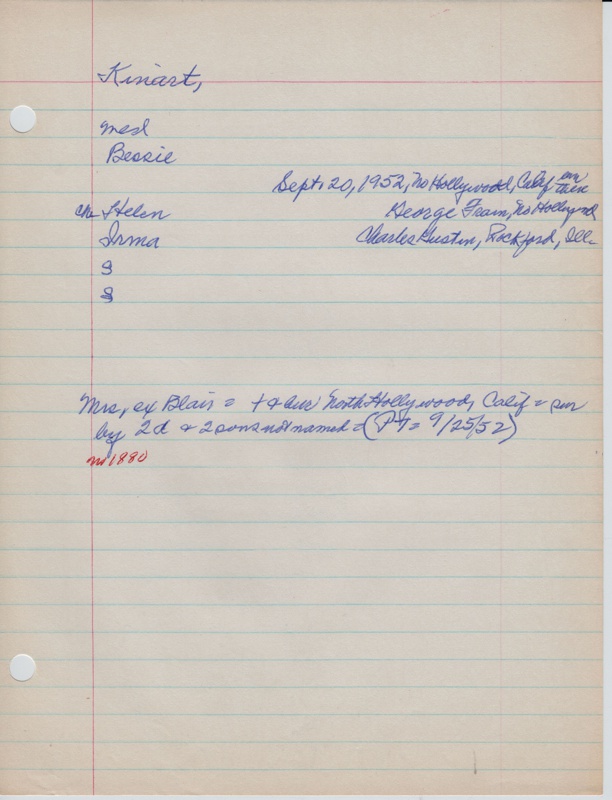 Kinart,
Med
Bessie
Sept. 20, 1952, No Hollywood, Calif
Ch= Helen George Fram, No Hollywood
Irma Charles Gustin, Rockford, Ill.
S
S
Mrs, ex Blair = + & bur North Hollywood, Calif = sur
by 2d & 2 sons not named = (PT= 9/25/52)
m 1880